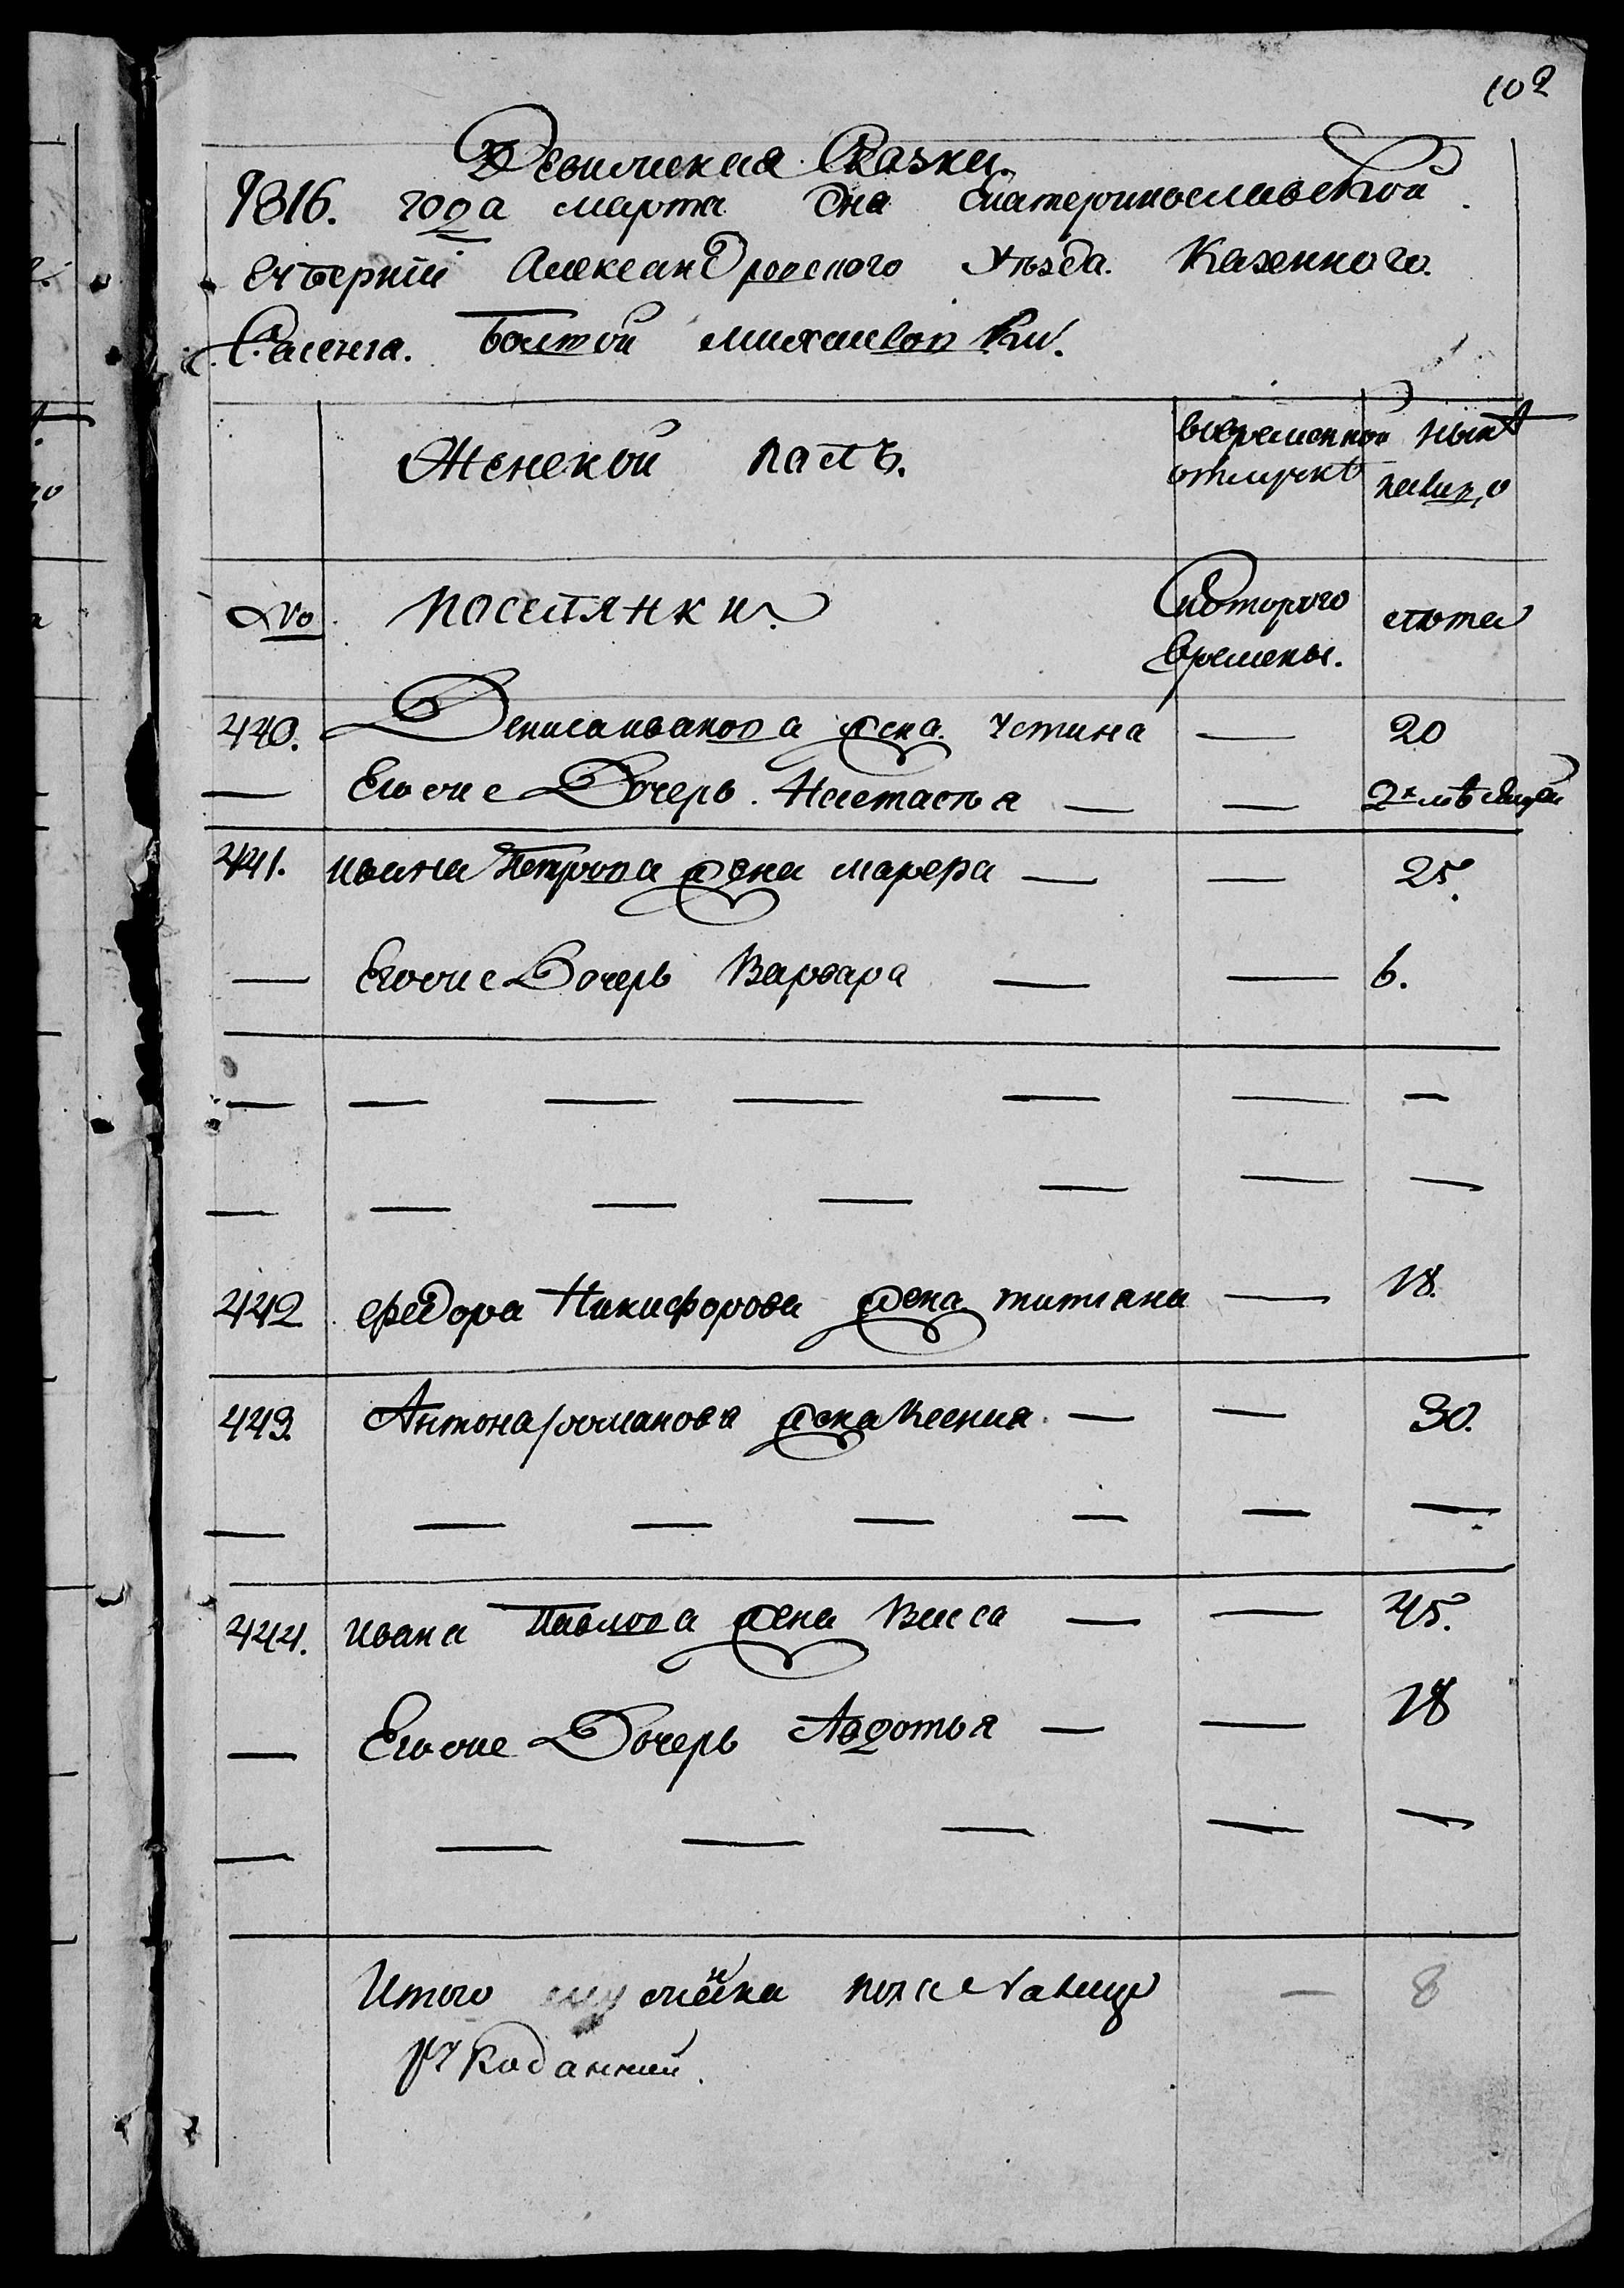 102
Ревизская Сказка.
1816. года марта дня Екатеринославской
Губернии Александровского уѣзда. Казенного.
Селения. Бол[ь]шой Михайловки.
Женской полъ.
вовременной отлучкѣ
нынѣ налицо
№ поселянки.
Скоторого времени.
лѣта
440. Дениса иванова жена Устина — 20
— Егоже Дочерь. Настасья — — 2х мѣсяцей
441. ивана Петрова жена марфа — — 25.
— Егоже Дочерь Варвара — — 6.
— — — — — — —
— — — — — — —
442 федора Никифорова жена титиана — 18.
443. Антона романова жена Ксения. — — 30.
— — — — — — —
444. ивана Павлова жена Васса — — 45.
— Егоже Дочерь Авдотья — — 18
— — — — — —
Итого женска пола налицо — 8